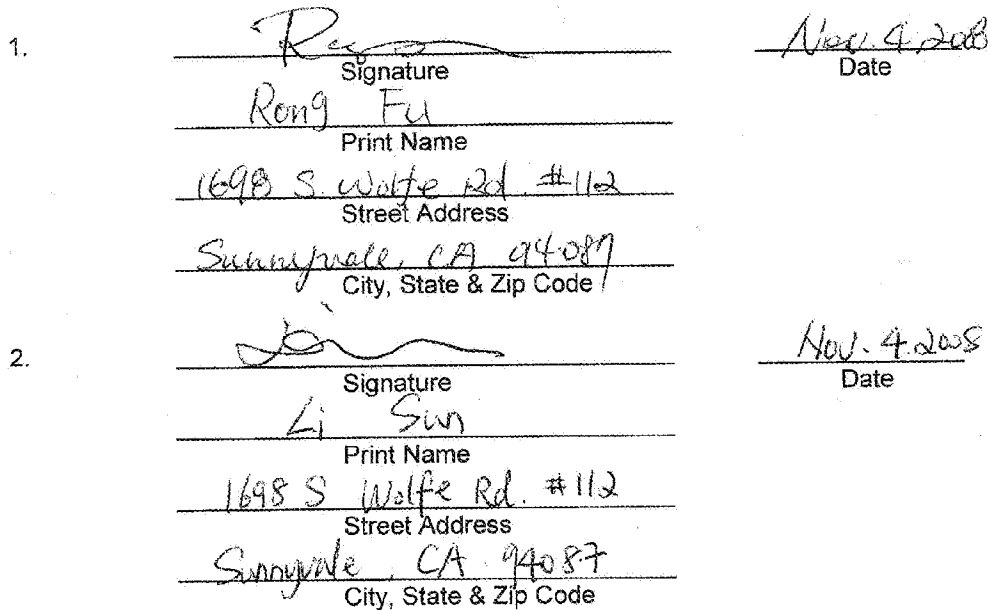 1. Nov. 4. 2008
Signature Date
Rong Fu
Print Name
1698 S. Wolfe Rd. #112
Street Address
Sunnyvale, CA 94087
City, State & Zip Code
2. Nov. 4. 2008
Signature Date
Li Sun
Print Name
1698 S Wolfe Rd. #112
Street Address
Sunnyvale, CA 94087
City, State & Zip Code